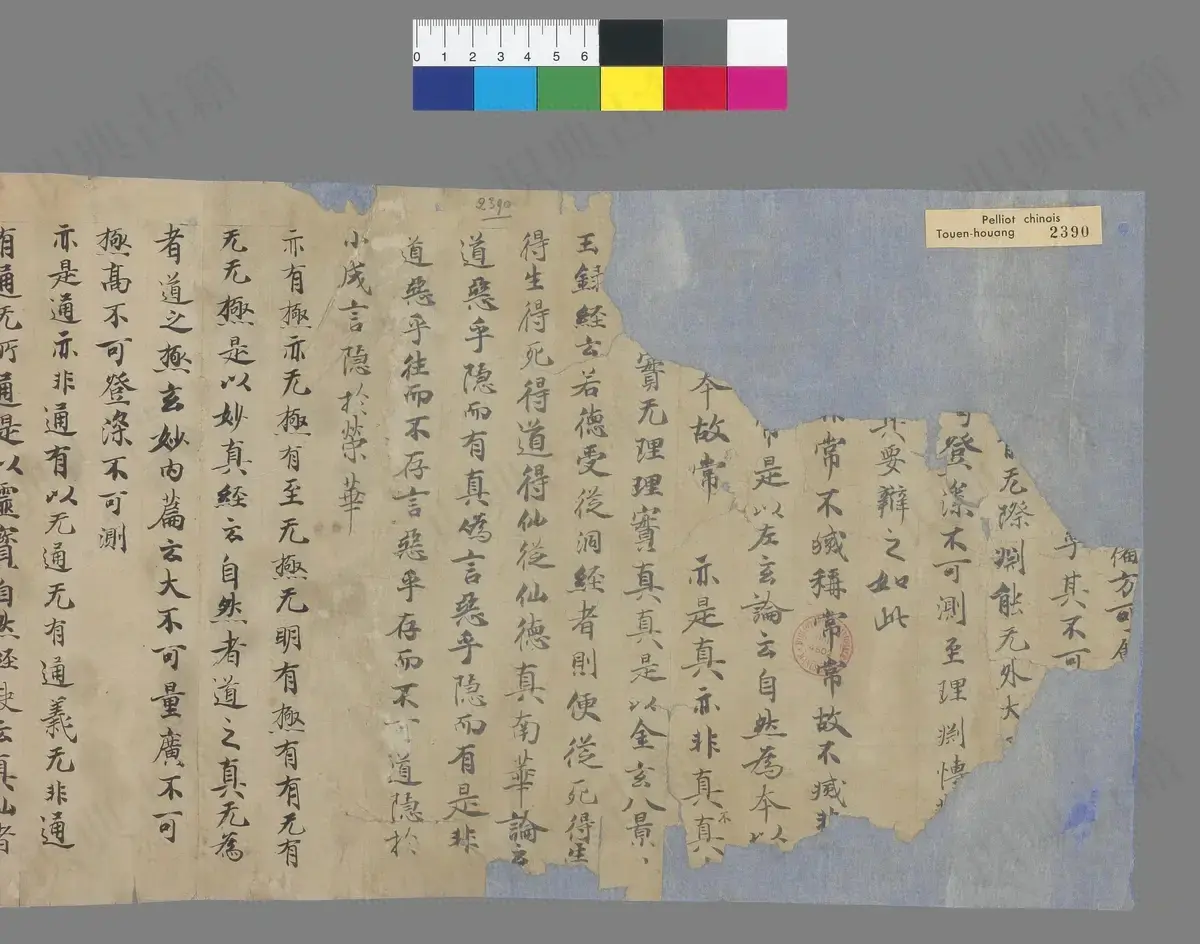 方可
乎其不可
无際渊能无外大
登深不可測至理渊
其要辯之如此
常不滅稱常常故不滅非
常是以左玄論云自然為本以
本故常 亦是真亦非真不真
實无理理實真真是以金玄八景
玉録経云若德受従洞経者則便従死得生
得生得死得道得仙従仙德真南華論云
道惡乎隐而有真偽言惡乎隐而有是非
道惡乎往而不存言惡乎存而不可道隐於
小成言隐於榮華
亦有極亦无極有至无極无明有極有有无有
无无極是以妙真経云自然者道之真无為
者道之極玄妙内篇云大不可量廣不可
極高不可登深不可測
亦是通亦非通有以无通无有通義无非通
有通无所通是以靈寶自然経訣云真仙者
2390
Pelliot chinois
Touen-houang 2390
0 1 2 3 4 5 6